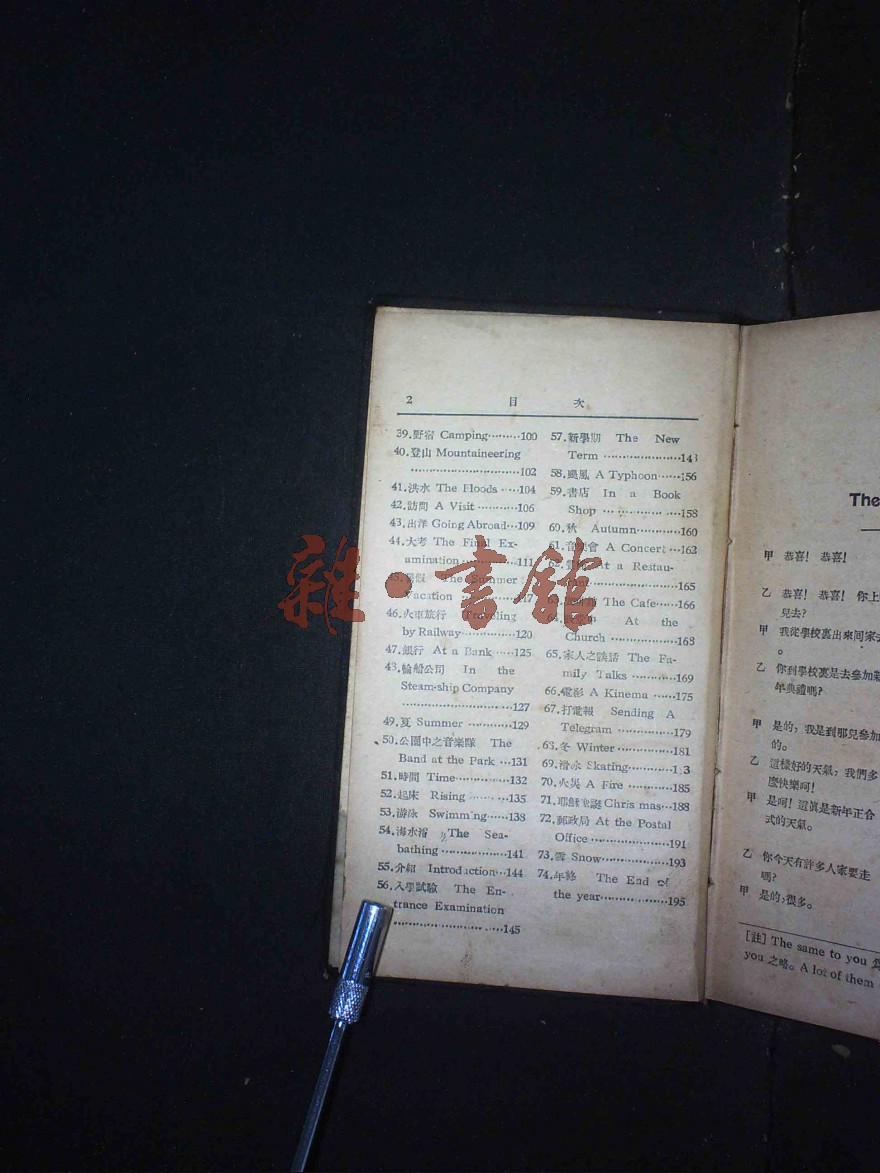 2 目 次
39.野宿 Camping·········100
40.登山 Mountaineering
······························102
41.洪水 The Floods ·····104
42.訪問 A Visit ············106
43.出洋 Going Abroad···109
44.大考 The Final Ex-
amination ···············111
The Summer
Vacation
46.火車旅行 Traveling
by Railway···············120
47.銀行 At a Bank ·····125
43.輪船公司 In the
Steam-ship Company
······························127
49.夏 Summer ············129
50.公園中之音樂隊 The
Band at the Park ···131
51.時間 Time···············132
52.起床 Rising ············135
53.游泳 Swimming······138
54.海水浴 The Sea-
bathing ··················141
55.介紹 Introduction···144
56.入學試驗 The En-
trance Examination
······························145
57.新學期 The New
Term ·····················143
58.颶風 A Typhoon······156
59.書店 In a Book
Shop ·····················158
60.秋 Autumn············160
61.音樂會 A Concert···162
At a Restau-
165
The Cafe·····166
At the
Church ···············168
65.家人之談話 The Fa-
mily Talks ············169
66.電影 A Kinema ······175
67.打電報 Sending A
Telegram ···············179
63.冬 Winter ···············181
69.滑冰 Skating············1 3
70.火災 A Fire ············185
71.耶穌聖誕 Chris mas···188
72.郵政局 At the Postal
Office ·····················191
73.雪 Snow··················193
74.年終 The End of
the year··················195
The
甲 恭喜! 恭喜!
乙 恭喜! 恭喜! 你上
兒去?
甲 我從學校裏出來同家去
。
乙 你到學校裏是去參加新
年典禮嗎?
甲 是的,我是到那兒參加
的。
乙 這樣好的天氣,我們多
麼快樂呵!
甲 是呵!這眞是新年正合
式的天氣。
乙 你今天有許多人家要走
嗎?
甲 是的,很多。
[註] The same to you 爲
you 之略。A lot of them
雜·書舘